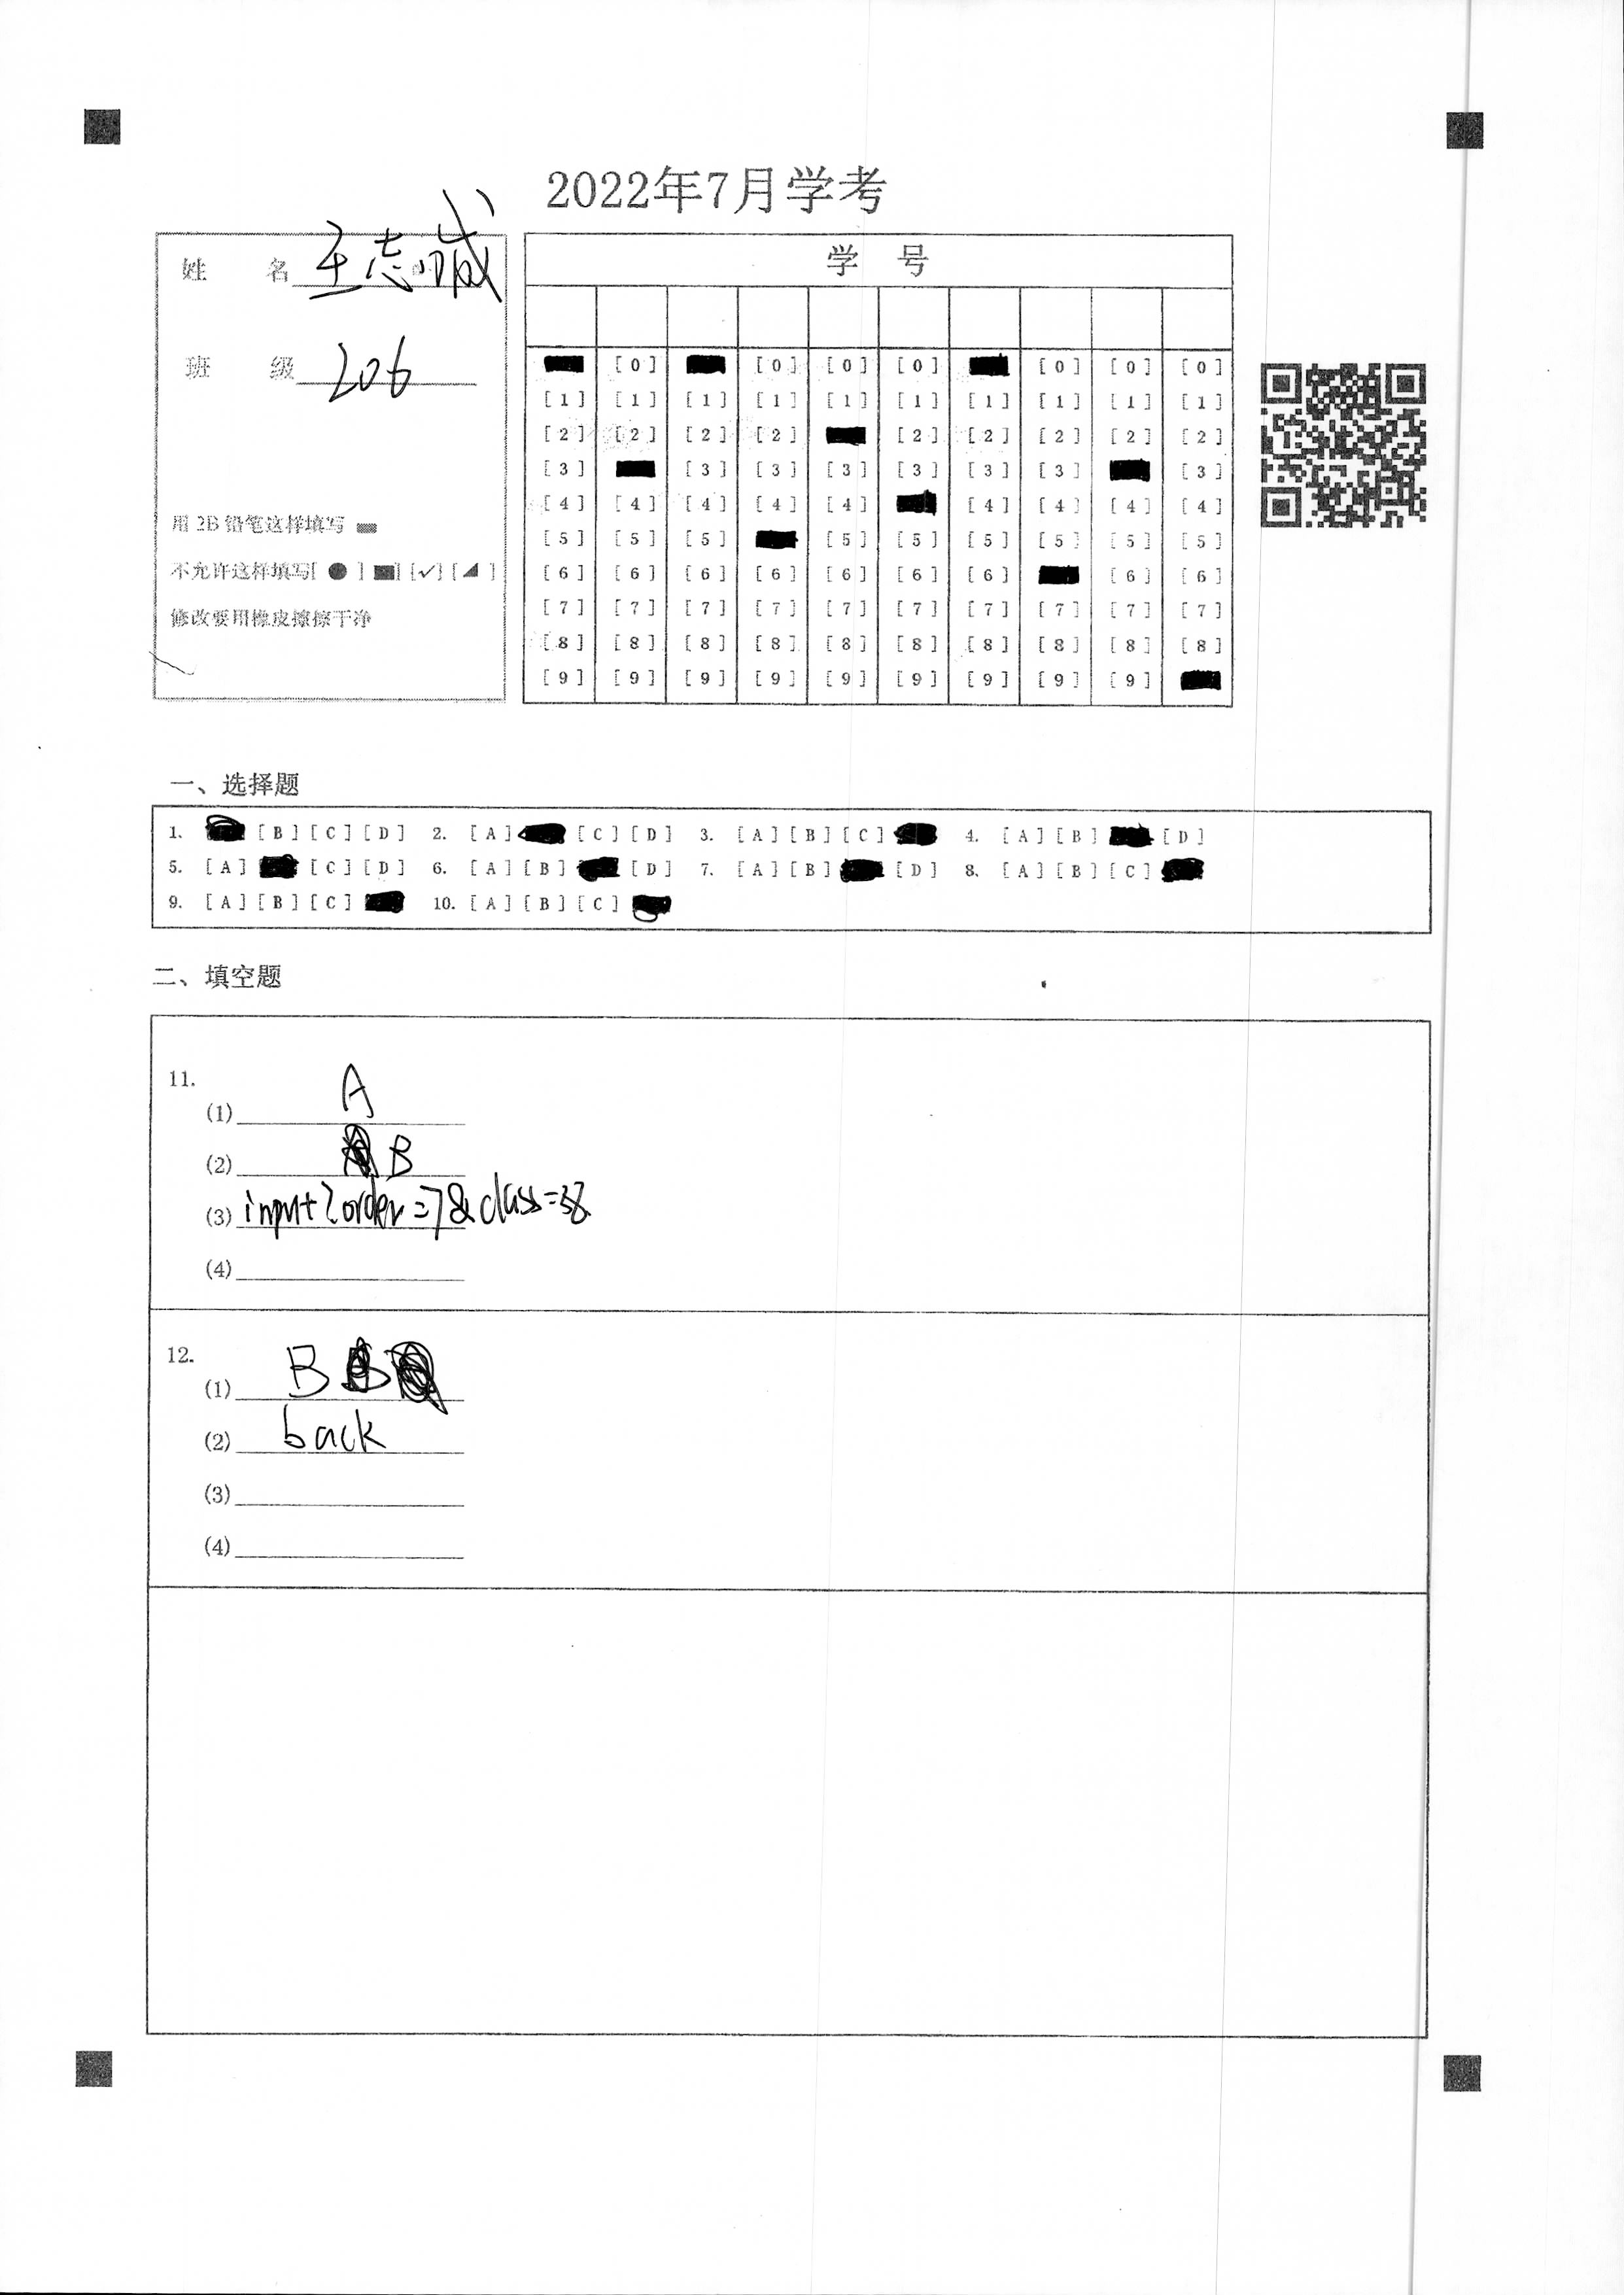 2022年7月学考
姓 名 王志诚
班 级 206
用 2B 铅笔这样填写
不允许这样填写[ ● ] [■] [✓] [◢ ]
修改要用橡皮擦擦干净
学 号
[0] [0] [0] [0] [0] [0] [0]
[1] [1] [1] [1] [1] [1] [1] [1] [1] [1]
[2] [2] [2] [2] [2] [2] [2] [2] [2]
[3] [3] [3] [3] [3] [3] [3] [3]
[4] [4] [4] [4] [4] [4] [4] [4] [4]
[5] [5] [5] [5] [5] [5] [5] [5] [5]
[6] [6] [6] [6] [6] [6] [6] [6] [6]
[7] [7] [7] [7] [7] [7] [7] [7] [7] [7]
[8] [8] [8] [8] [8] [8] [8] [8] [8] [8]
[9] [9] [9] [9] [9] [9] [9] [9] [9]
一、选择题
1. [B] [C] [D] 2. [A] [C] [D] 3. [A] [B] [C] 4. [A] [B] [D]
5. [A] [C] [D] 6. [A] [B] [D] 7. [A] [B] [D] 8. [A] [B] [C]
9. [A] [B] [C] 10. [A] [B] [C]
二、填空题
11.
(1) A
(2) B
(3) input?order=7&class=38
(4)
12.
(1) B
(2) back
(3)
(4)